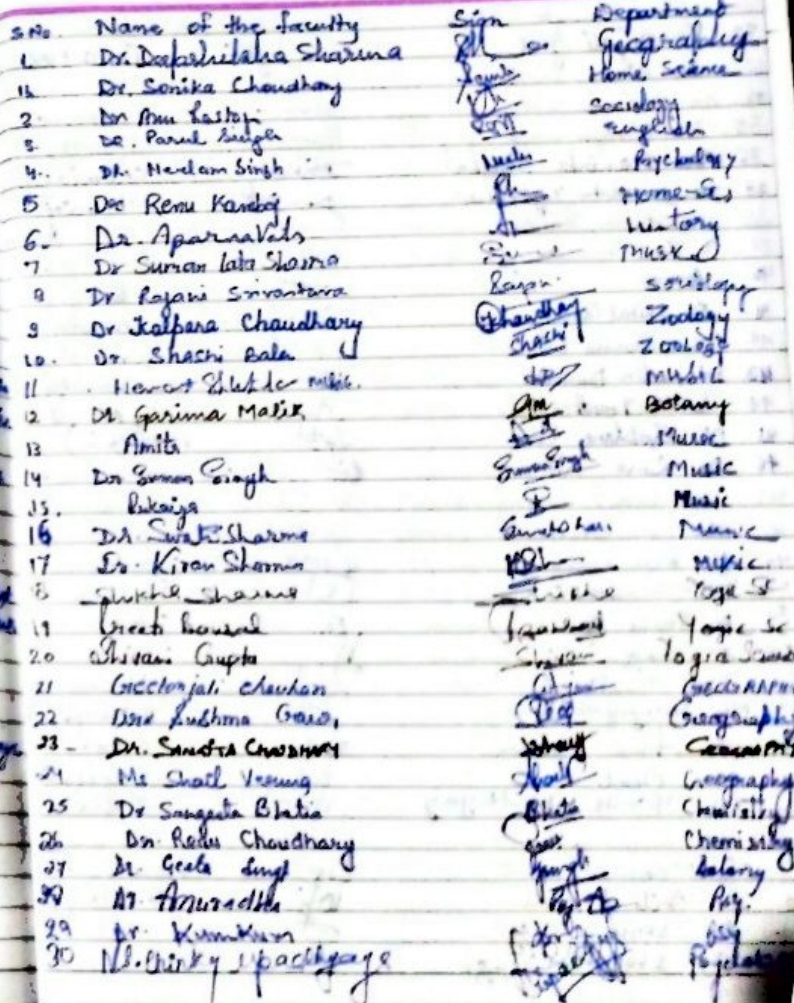 S No. Name of the faculty Sign Department
1. Dr. Deepshikha Sharma Geography
1b Dr. Sonika Choudhary Home Science
2. Dr. Anu Rastogi Sociology
3. Dr. Parul Singh English
4. Dr. Neelam Singh Psychology
5 Dr. Renu Kamboj Home-Sc
6. Dr. Aparna Vats History
7 Dr Suman lata Sharma Music
8 Dr Rajani Srivastava Rajani Sociology
9 Dr Kalpana Chaudhary Chaudhary Zoology
10. Dr. Shashi Bala Shashi Zoology
11 Music
12 Dr Garima Malik Gm Botany
13 Amita Music
14 Dr Suman Singh Suman Singh Music
15. Rukaiya R Music
16 Dr Swati Sharma Music
17 Dr. Kiran Sharma Music
Sharma Yoga Sc
19 Preeti Bansal Yogic Sc
20 Shivani Gupta Shivani Yogic Science
21 Geetanjali Chauhan Geography
22 Sushma Geography
23 - Dr. Sangita Chaudhary Geography
24 Ms Shail Geography
25 Dr Sangeeta Bhatia Bhatia Chemistry
26 Dr. Renu Choudhary Chemistry
27 Dr. Geeta Singh Singh Botany
28 Dr. Anuradha Psy.
29 Dr. Kumkum Psy
30 Chinky Upadhyaya Psychology